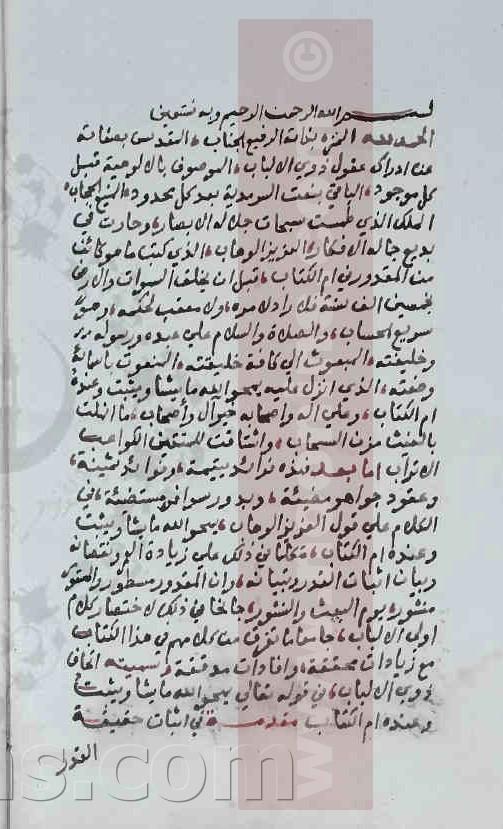 بسم الله الرحمن الرحيم وبه نستعين
الحمد لله المنزه بذاته الرفيع الجناب، المقدس بصفاته
عن ادراك عقول ذوي الالباب، الموصوف بالالوهية قبل
كل موجود، الباقي بنعت السرمدية بعد كل محدود، المنيع الحجاب
الملك الذي طمست سبحات جلاله الابصار، وحارت في
بديع جماله الافكار، العزيز الوهاب، الذي كتب ما هو كائن
من المقدور في ام الكتاب، قبل ان يخلق السموات والارض
بخمسين الف سنة فلا راد لامره، ولا معقب لحكمه، وهو
سريع الحساب، والصلاة والسلام على عبده ورسوله
وخليفته، المبعوث الى كافة خليقته، المنعوت باسمائه
وصفته، الذي انزل عليه يمحو الله ما يشا ويثبت وعنده
ام الكتاب، وعلى اله واصحابه خير آل وأصحاب، ما انهلت
بالغيث مزن السحاب، واشتاقت للمتقين الكواعب
الاتراب اما بعد فهذه فرائد يتيمة، وفوائد ثمينة،
وعقود جواهر مضيئة، وبدور سوافر مستضئة، في
الكلام على قول العزيز الوهاب، يمحو الله ما يشا ويثبت
وعنده ام الكتاب، تكلمنا في ذلك على زيادة العمر ونقصانه
وبيان اثبات القدر وتبيانه، وان المقدور مسطور، والمطوي
منشور، يوم البعث والنشور، جانحا في ذلك لاختصار كلام
اولي الالباب، جامعا ما تفرق من كلامهم في هذا الكتاب
مع زيادات محققة، وافادات مدققة، وسميته اتحاف
ذوي الالباب، في قوله تعالى يمحو الله ما يشا ويثبت
وعنده ام الكتاب مقدمة في اثبات حقيقة
القدر
ns.com
©